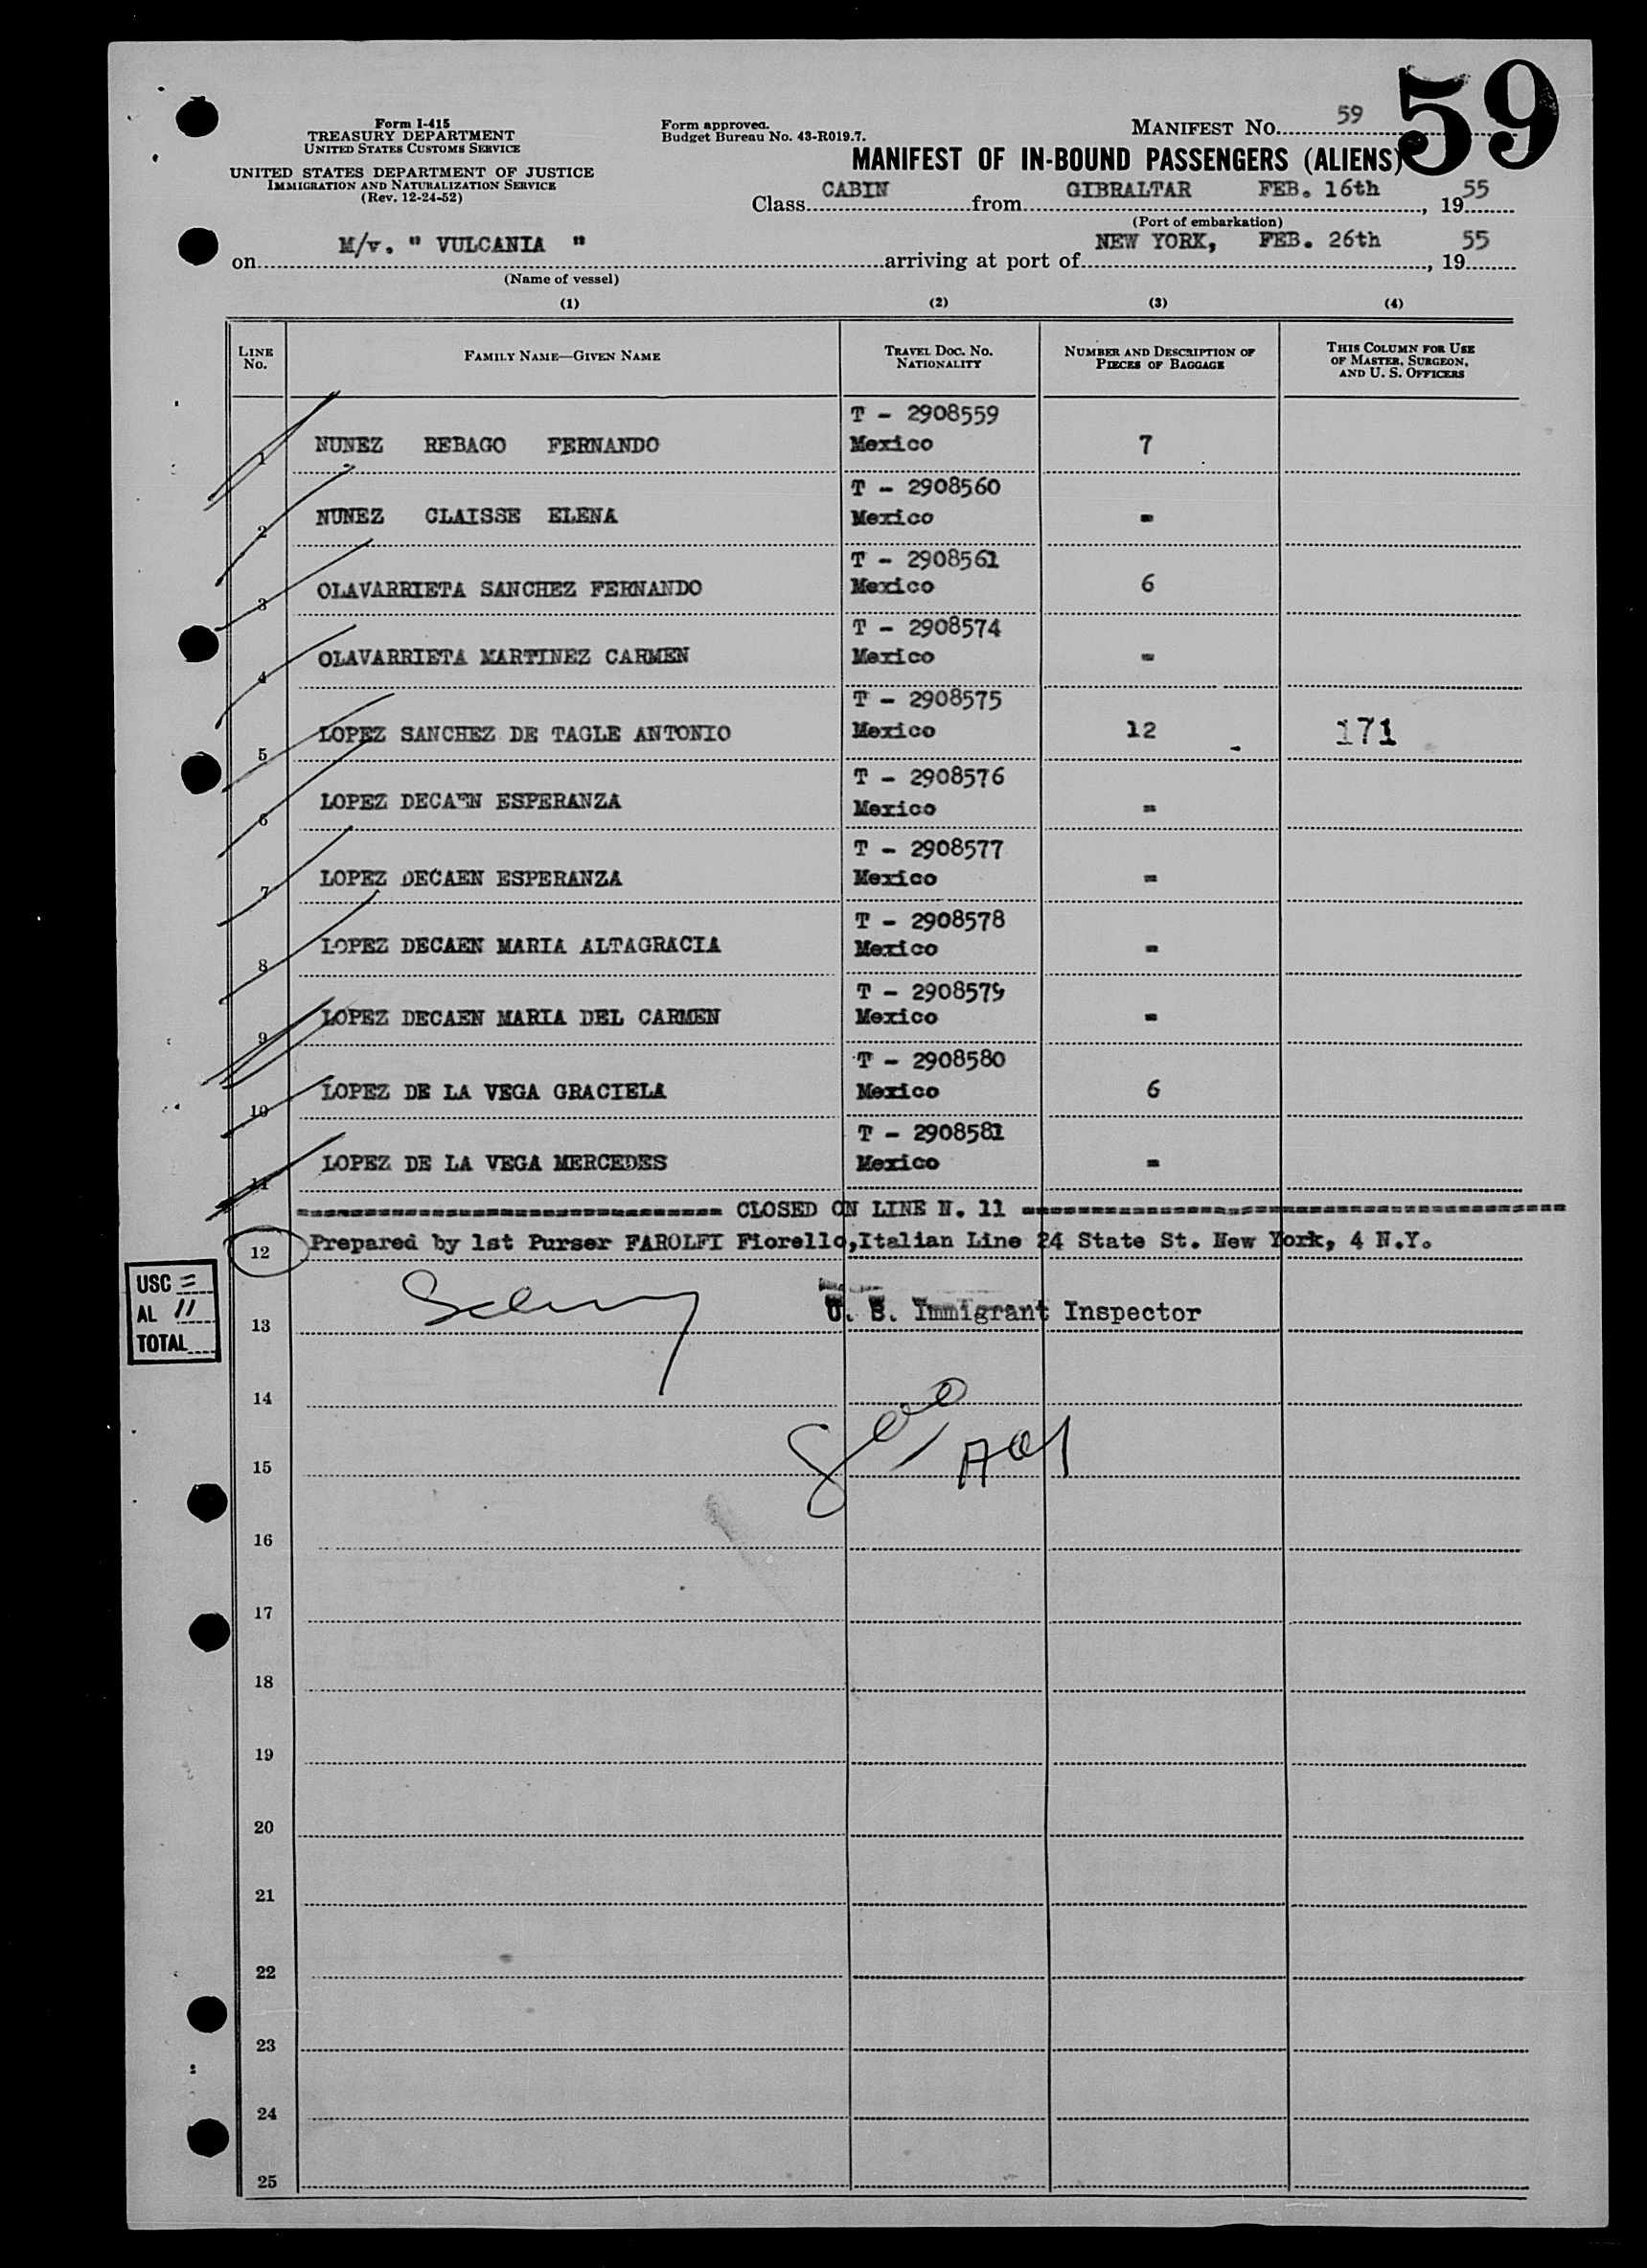 59
Form I-415
TREASURY DEPARTMENT
UNITED STATES CUSTOMS SERVICE
UNITED STATES DEPARTMENT OF JUSTICE
IMMIGRATION AND NATURALIZATION SERVICE
(Rev. 12-24-52)
Form approved.
Budget Bureau No. 43-R019.7.
MANIFEST NO. 59
MANIFEST OF IN-BOUND PASSENGERS (ALIENS)
Class CABIN from GIBRALTAR FEB. 16th, 1955
(Port of embarkation)
on M/v. " VULCANIA " arriving at port of NEW YORK, FEB. 26th, 1955
(Name of vessel)
(1) (2) (3) (4)
LINE NO. FAMILY NAME—GIVEN NAME TRAVEL DOC. NO. NATIONALITY NUMBER AND DESCRIPTION OF PIECES OF BAGGAGE THIS COLUMN FOR USE OF MASTER, SURGEON, AND U. S. OFFICERS
T - 2908559
1 NUNEZ REBAGO FERNANDO Mexico 7
T - 2908560
2 NUNEZ CLAISSE ELENA Mexico -
T - 2908561
3 OLAVARRIETA SANCHEZ FERNANDO Mexico 6
T - 2908574
4 OLAVARRIETA MARTINEZ CARMEN Mexico -
T - 2908575
5 LOPEZ SANCHEZ DE TAGLE ANTONIO Mexico 12 171
T - 2908576
6 LOPEZ DECAEN ESPERANZA Mexico -
T - 2908577
7 LOPEZ DECAEN ESPERANZA Mexico -
T - 2908578
8 LOPEZ DECAEN MARIA ALTAGRACIA Mexico -
T - 2908579
9 LOPEZ DECAEN MARIA DEL CARMEN Mexico -
T - 2908580
10 LOPEZ DE LA VEGA GRACIELA Mexico 6
T - 2908581
11 LOPEZ DE LA VEGA MERCEDES Mexico -
CLOSED ON LINE N. 11
12 Prepared by 1st Purser FAROLFI Fiorello, Italian Line 24 State St. New York, 4 N.Y.
USC =
AL 11
TOTAL
U. S. Immigrant Inspector
13
14
15
16
17
18
19
20
21
22
23
24
25